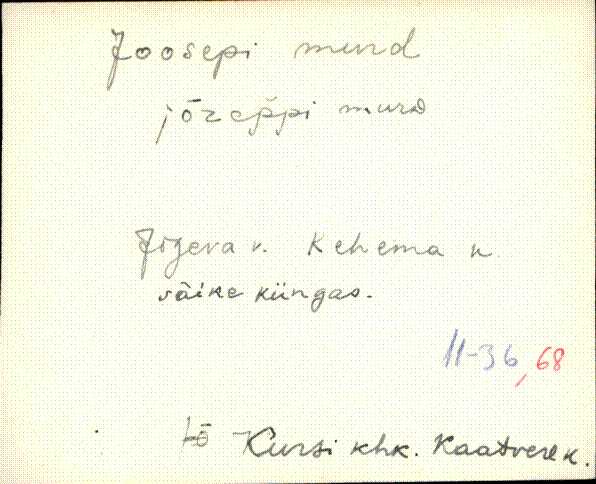 Joosepi murd
jōzeppi murd
Jõgeva v. Kehema k.
väike küngas.
11-36, 68
Kursi khk. Kaatvere k.